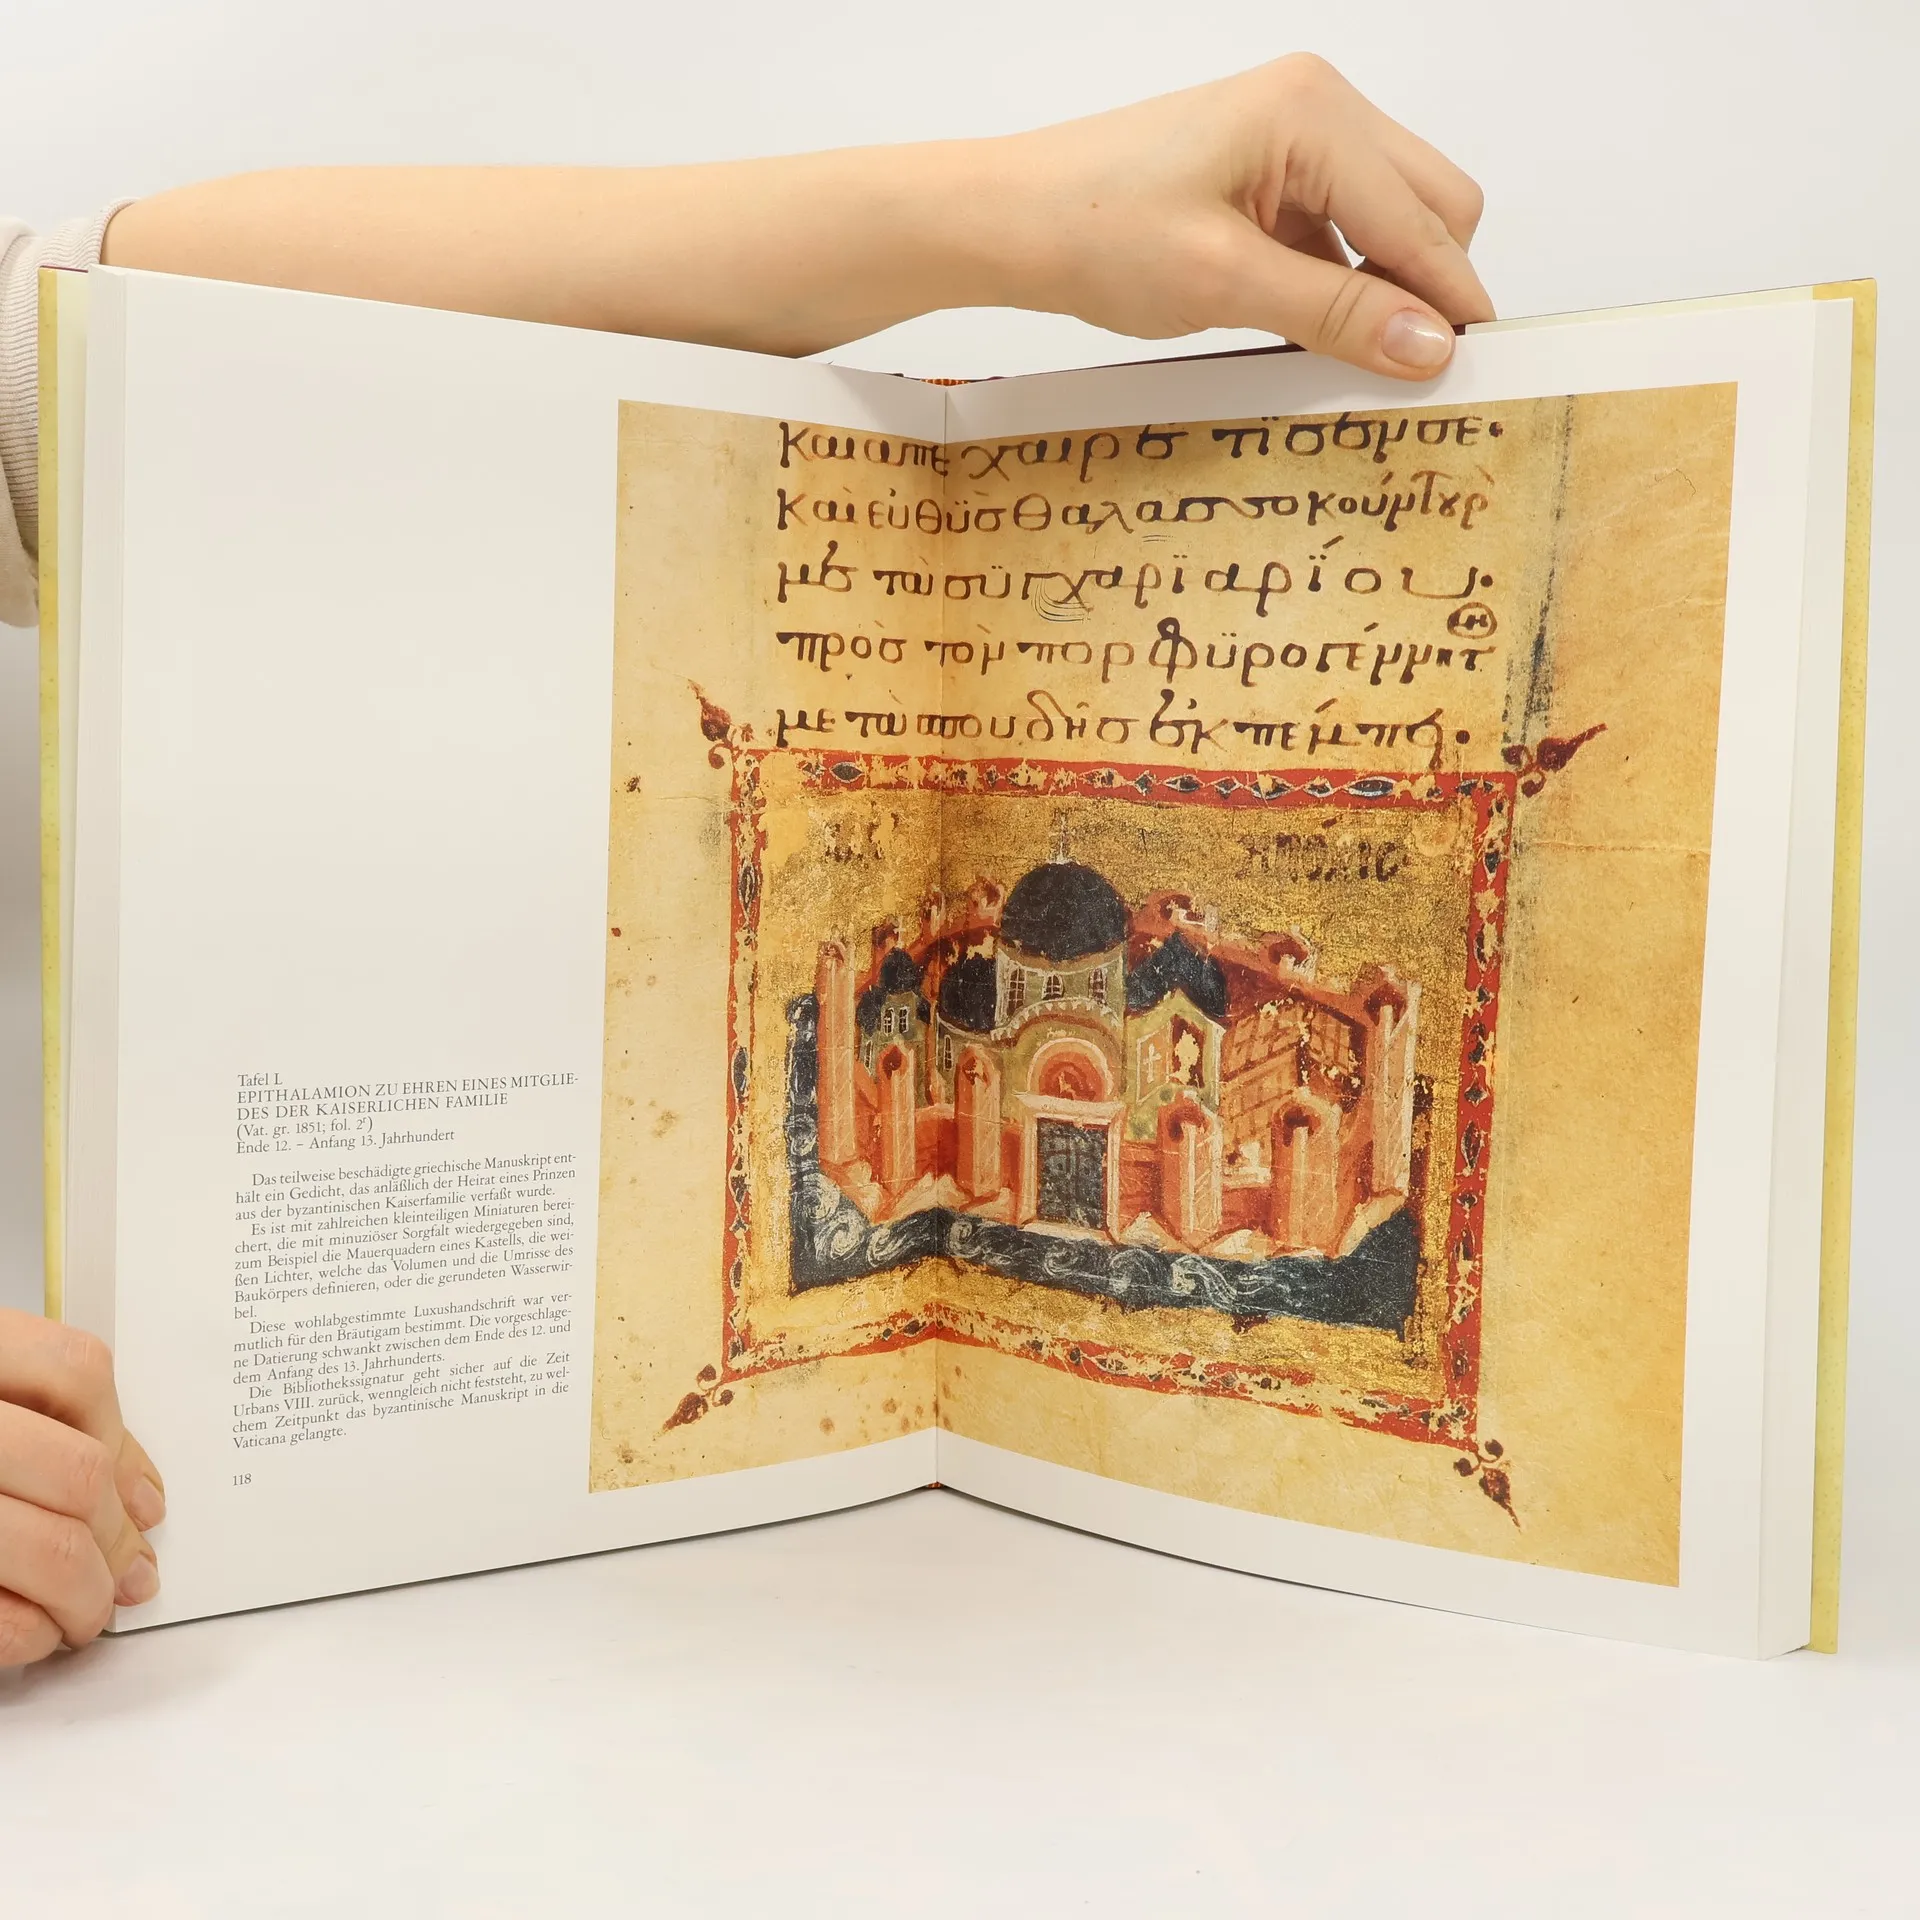 Tafel L
EPITHALAMION ZU EHREN EINES MITGLIE-
DES DER KAISERLICHEN FAMILIE
(Vat. gr. 1851; fol. 2ʳ)
Ende 12. – Anfang 13. Jahrhundert
Das teilweise beschädigte griechische Manuskript ent-
hält ein Gedicht, das anläßlich der Heirat eines Prinzen
aus der byzantinischen Kaiserfamilie verfaßt wurde.
Es ist mit zahlreichen kleinteiligen Miniaturen berei-
chert, die mit minuziöser Sorgfalt wiedergegeben sind,
zum Beispiel die Mauerquadern eines Kastells, die wei-
ßen Lichter, welche das Volumen und die Umrisse des
Baukörpers definieren, oder die gerundeten Wasserwir-
bel.
Diese wohlabgestimmte Luxushandschrift war ver-
mutlich für den Bräutigam bestimmt. Die vorgeschlage-
ne Datierung schwankt zwischen dem Ende des 12. und
dem Anfang des 13. Jahrhunderts.
Die Bibliothekssignatur geht sicher auf die Zeit
Urbans VIII. zurück, wenngleich nicht feststeht, zu wel-
chem Zeitpunkt das byzantinische Manuskript in die
Vaticana gelangte.
118
Και
Καὶ εὐθϋσ
μετὰ σϋγχαρϊαρΐου·
πρὸσ τὸν πορφϋρογέννητ
μετὰ σπουδῆσ ἐκπέμπει·